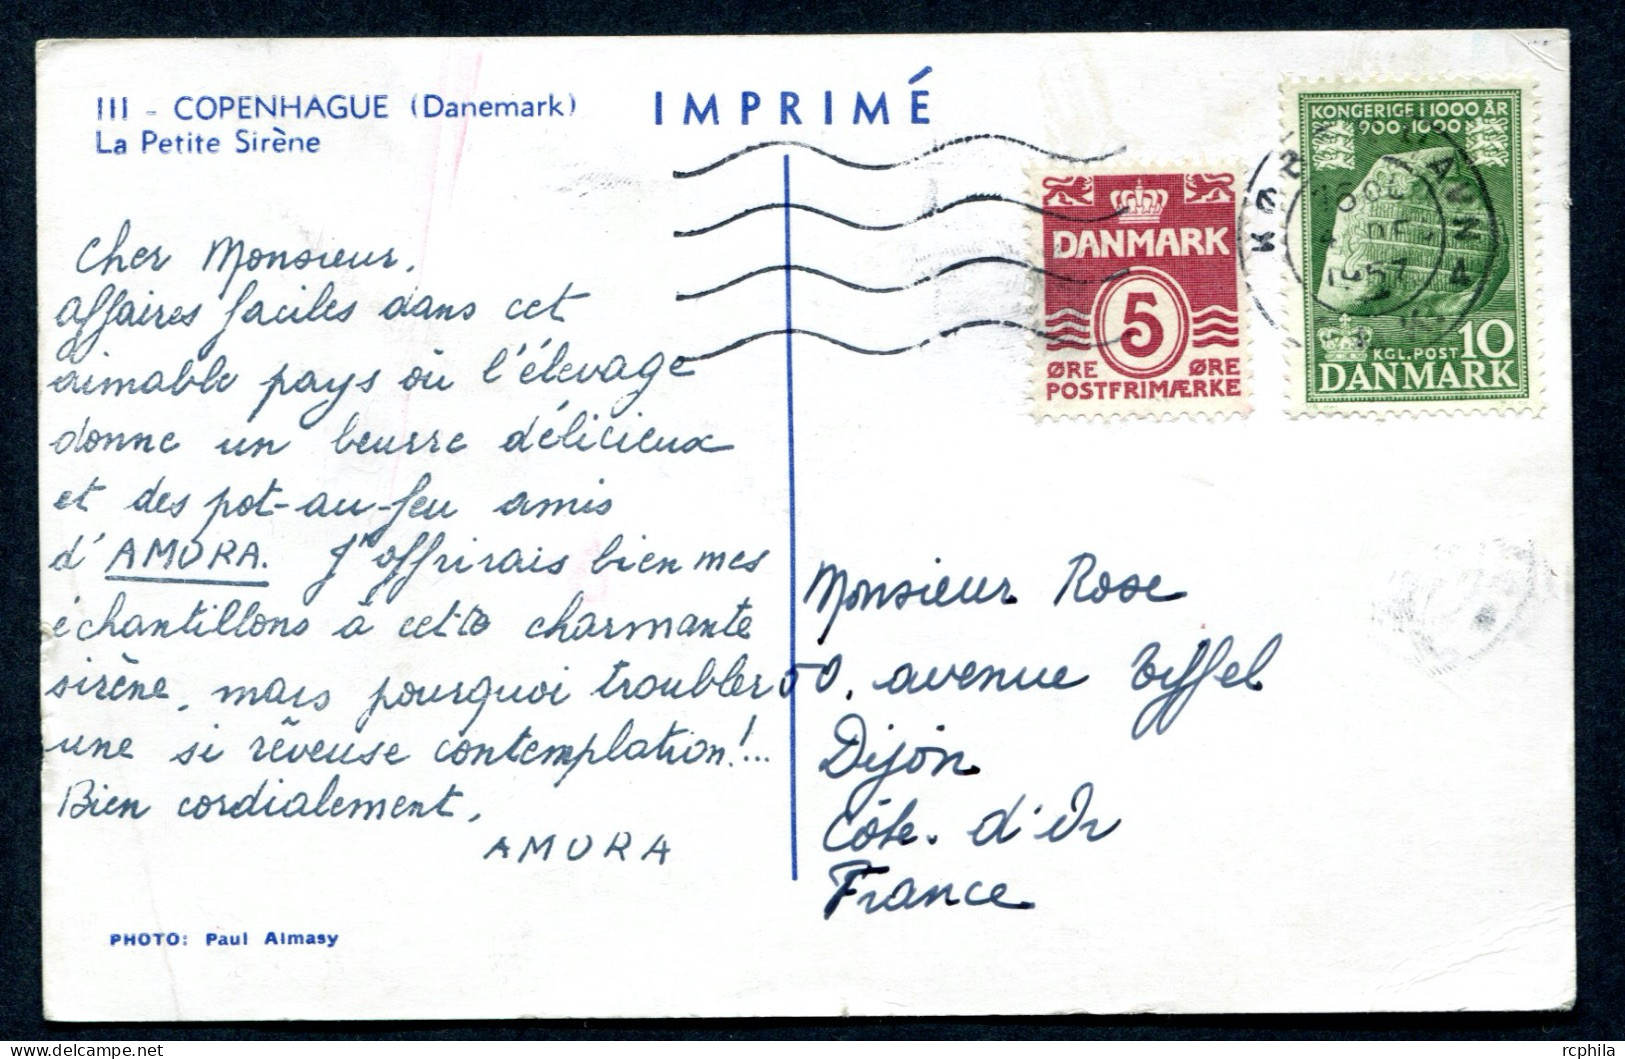 III - COPENHAGUE (Danemark)
La Petite Sirène
IMPRIMÉ
Cher Monsieur,
affaires faciles dans cet
aimable pays où l'élevage
donne un beurre délicieux
et des pot-au-feu amis
d'AMORA. J'offrirais bien mes
échantillons à cette charmante
sirène, mais pourquoi troubler
une si rêveuse contemplation!...
Bien cordialement,
AMORA
PHOTO: Paul Almasy
DANMARK
5
ØRE ØRE
POSTFRIMÆRKE
KONGERIGE I 1000 ÅR
900-1900
KGL. POST 10
DANMARK
1957
Monsieur Rose
50, avenue Eiffel
Dijon
Côte. d'Or
France
rcphila